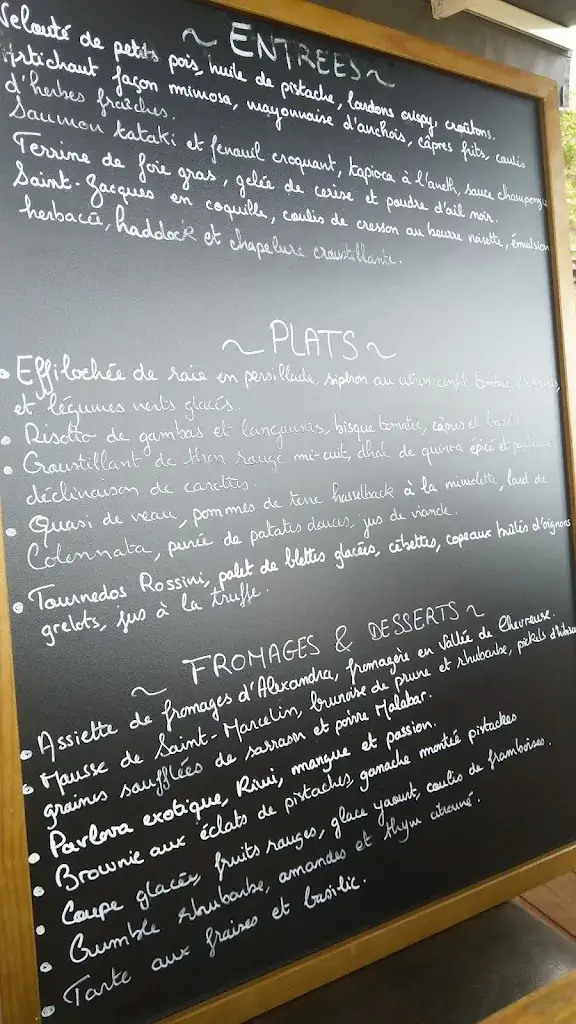 ~ ENTREES ~
Velouté de petits pois, huile de pistache, lardons crispy, croûtons.
Artichaut façon mimosa, mayonnaise d'anchois, câpres frits, coulis
d'herbes fraîches.
Saumon tataki et fenouil croquant, tapioca à l'aneth, sauce
Terrine de foie gras, gelée de cerise et poudre d'ail noir.
Saint-Jacques en coquille, coulis de cresson au beurre noisette, émulsion
herbacée, haddock et chapelure croustillante.
~ PLATS ~
• Effilochée de raie en persillade, siphon au citron confit,
et légumes verts glacés.
• Risotto de gambas et langoustines, bisque tomatée, câpres et basilic
• Croustillant de thon rouge mi-cuit, dhal de quinoa épicé et
déclinaison de carottes.
• Quasi de veau, pommes de terre hasselback à la mimolette, lard de
Colonnata, purée de patates douces, jus de viande.
• Tournedos Rossini, palet de blettes glacées, cébettes, copeaux brûlés d'oignons
grelots, jus à la truffe.
~ FROMAGES & DESSERTS ~
• Assiette de fromages d'Alexandra, fromagère en Vallée de Chevreuse.
• Mousse de Saint-Marcelin, brunoise de prune et rhubarbe, pickels
graines soufflées de sarrasin et poivre Malabar.
• Pavlova exotique, Kiwi, mangue et passion.
• Brownie aux éclats de pistaches, ganache montée pistaches
• Coupe glacée, fruits rouges, glace yaourt, coulis de framboises.
• Crumble rhubarbe, amandes et thym citronné.
• Tarte aux fraises et basilic.